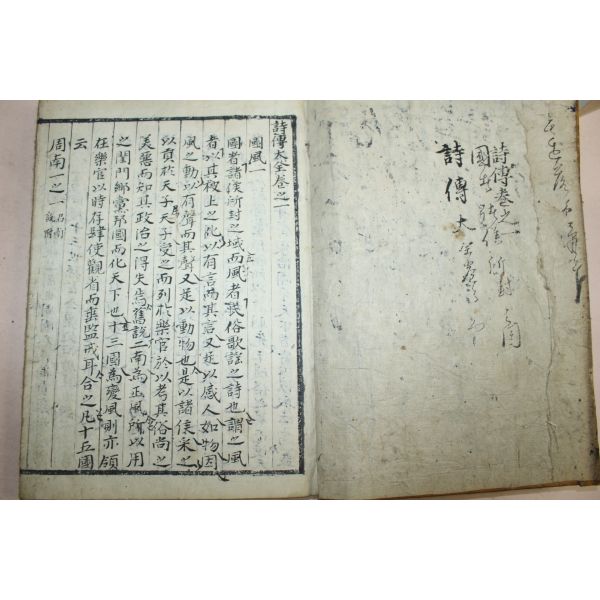 詩傳卷之
詩傳大
詩傳大全卷之一
國風一
國者諸侯所封之域而風者民俗歌謠之詩也謂之風
者以其被上之化以有言而其言又足以感人如物因
風之動以有聲而其聲又足以動物也是以諸侯采之
以貢於天子天子受之而列於樂官於以考其俗尙之
美惡而知其政治之得失焉舊說二南爲正風所以用
之閨門鄕黨邦國而化天下也十三國爲變風則亦領
在樂官以時存肄使觀省而垂監戒耳合之凡十五國
云
周南一之一